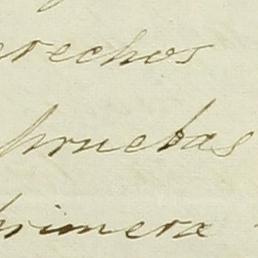 erechos
pruebas
primera